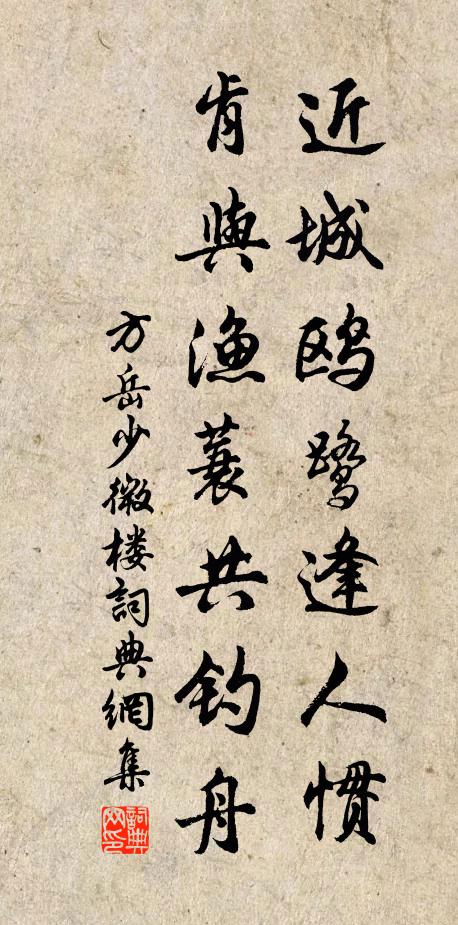 近城鸥鹭逢人惯
肯與漁蓑共钓舟
方岳少微楼詞典網集
詞典网印